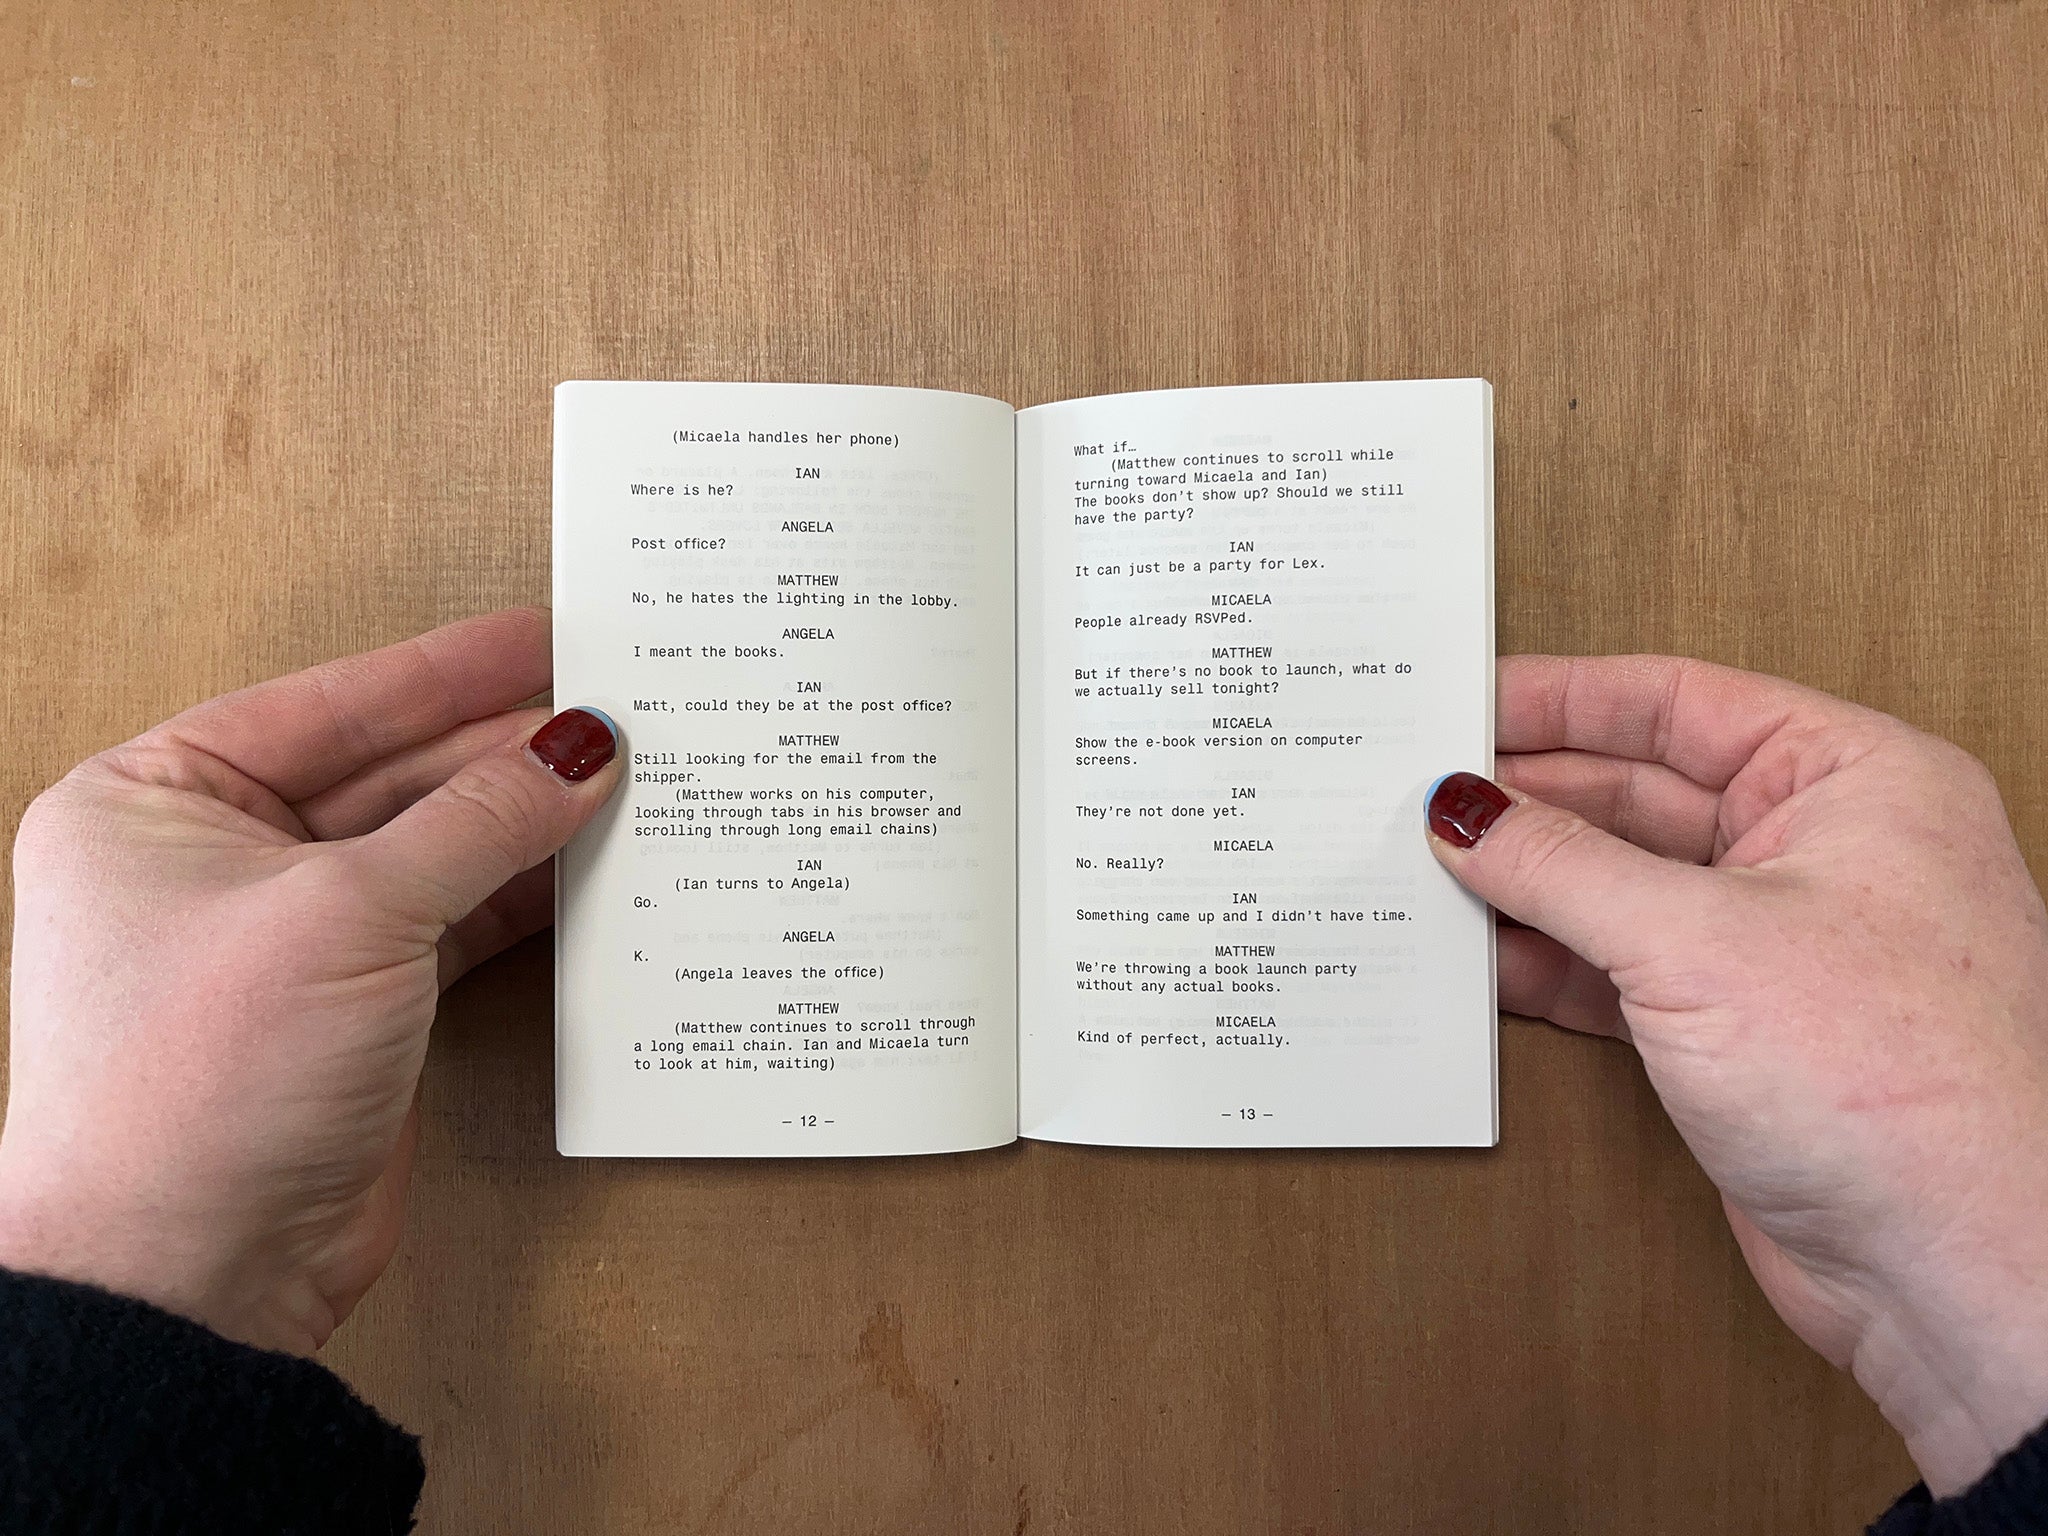 (Micaela handles her phone)
IAN
Where is he?
ANGELA
Post office?
MATTHEW
No, he hates the lighting in the lobby.
ANGELA
I meant the books.
IAN
Matt, could they be at the post office?
MATTHEW
Still looking for the email from the
shipper.
(Matthew works on his computer,
looking through tabs in his browser and
scrolling through long email chains)
IAN
(Ian turns to Angela)
Go.
ANGELA
K.
(Angela leaves the office)
MATTHEW
(Matthew continues to scroll through
a long email chain. Ian and Micaela turn
to look at him, waiting)
— 12 —
What if…
(Matthew continues to scroll while
turning toward Micaela and Ian)
The books don't show up? Should we still
have the party?
IAN
It can just be a party for Lex.
MICAELA
People already RSVPed.
MATTHEW
But if there's no book to launch, what do
we actually sell tonight?
MICAELA
Show the e-book version on computer
screens.
IAN
They're not done yet.
MICAELA
No. Really?
IAN
Something came up and I didn't have time.
MATTHEW
We're throwing a book launch party
without any actual books.
MICAELA
Kind of perfect, actually.
— 13 —